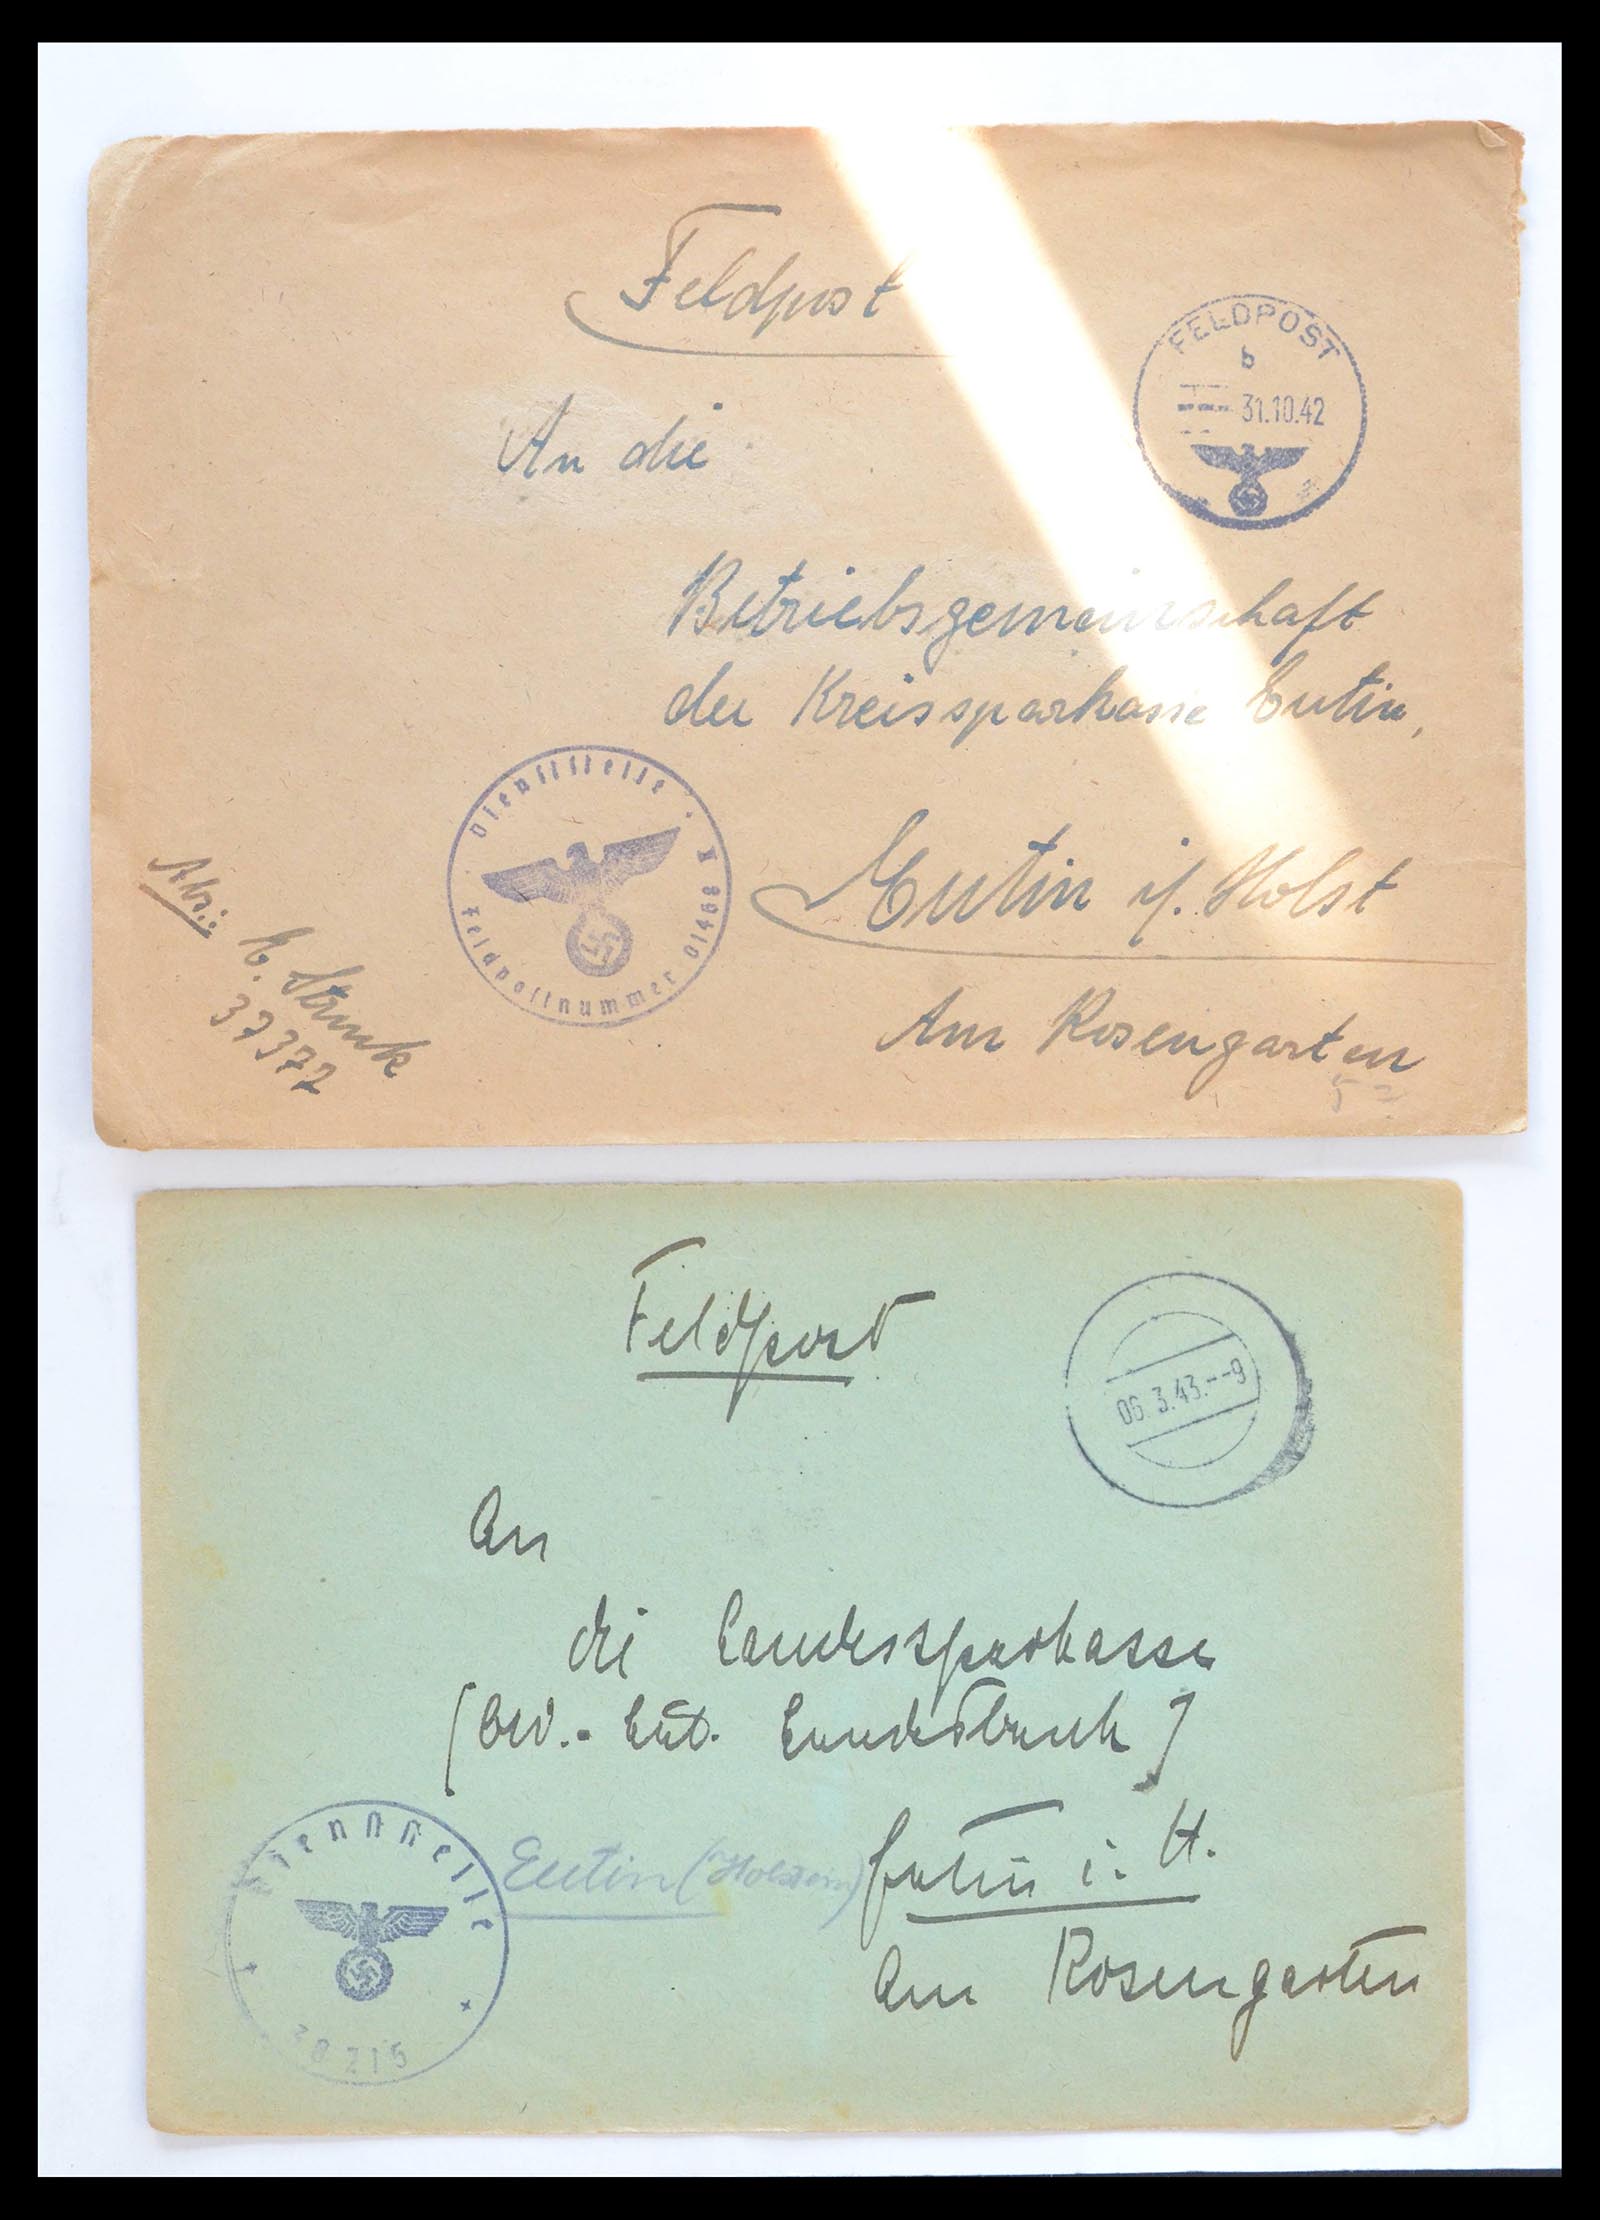 Feldpost
FELDPOST
b
31.10.42
An die
Betriebsgemeinschaft
der Kreissparkasse Eutin,
Dienststelle
Feldpostnummer 01468
Eutin i/. Holst
Am Rosengarten
Abs.:
37372
Feldpost
06.3.43.--9
An
die Landessparkasse
Eutin (Holstein)
Eutin i. H.
Am Rosengarten
Dienststelle